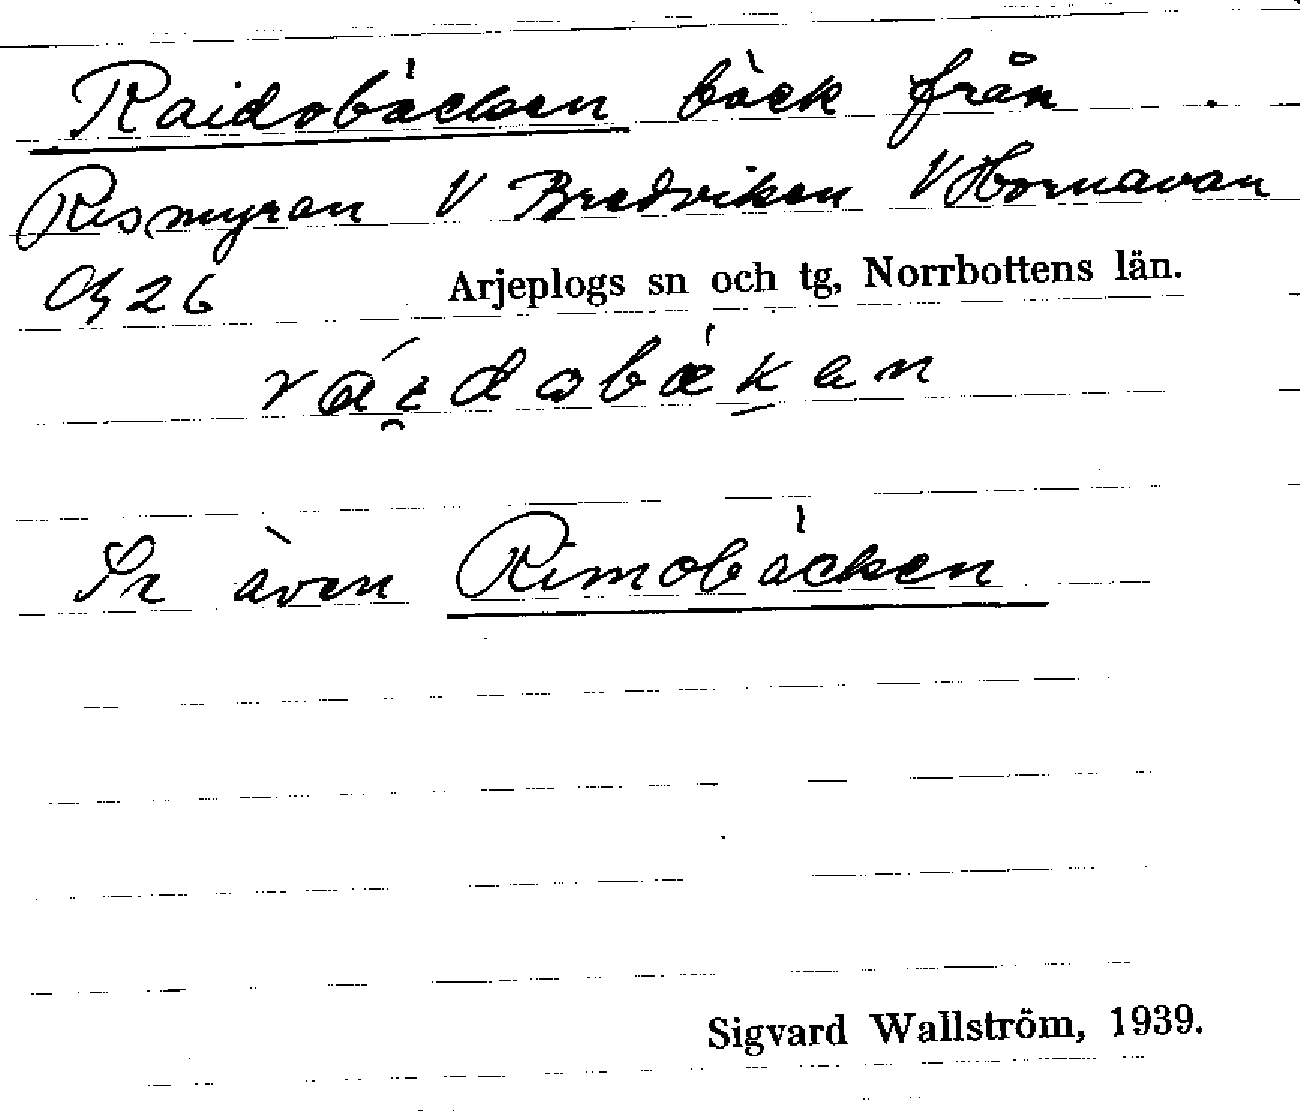 Raidobäcken bäck från
Rismyran V Bredviken V Hornavan
26
Arjeplogs sn och tg, Norrbottens län.
Se även Rimobäcken
Sigvard Wallström, 1939.